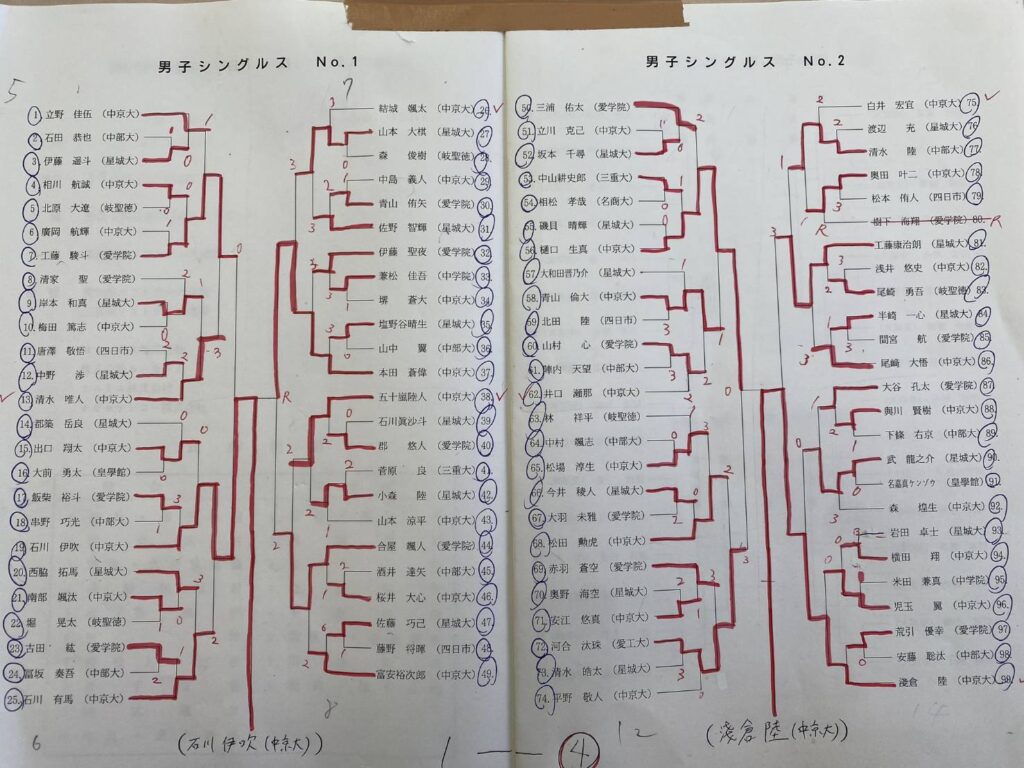 男子シングルス No.1
5
7
1. 立野 佳伍 (中京大)
2. 石田 恭也 (中部大)
3. 伊藤 遥斗 (星城大)
4. 相川 航誠 (中京大)
5. 北原 大遼 (岐聖徳)
6. 廣岡 航輝 (中京大)
7. 工藤 駿斗 (愛学院)
8. 清家 聖 (愛学院)
9. 岸本 和真 (星城大)
10. 梅田 篤志 (中京大)
11. 唐澤 敬悟 (四日市)
12. 中野 渉 (星城大)
13. 清水 唯人 (中京大)
14. 都築 岳良 (星城大)
15. 出口 翔太 (中京大)
16. 大前 勇太 (皇學館)
17. 飯柴 裕斗 (愛学院)
18. 串野 巧光 (中部大)
19. 石川 伊吹 (中京大)
20. 西脇 拓馬 (星城大)
21. 南部 颯汰 (中京大)
22. 堀 晃太 (岐聖徳)
23. 古田 紘 (愛学院)
24. 冨坂 奏吾 (中部大)
25. 石川 有馬 (中京大)
結城 颯太 (中京大) 26.
山本 大棋 (星城大) 27
森 俊樹 (岐聖徳) 28.
中島 義人 (中京大) 29.
青山 侑矢 (愛学院) 30.
佐野 智輝 (星城大) 31.
伊藤 聖夜 (愛学院) 32.
兼松 佳吾 (中学院) 33.
堺 蒼大 (中京大) 34.
塩野谷晴生 (星城大) 35.
山中 翼 (中部大) 36.
本田 蒼偉 (中京大) 37.
五十嵐陸人 (中京大) 38.
石川眞沙斗 (星城大) 39.
郡 悠人 (愛学院) 40.
菅原 良 (三重大) 41.
小森 陸 (星城大) 42.
山本 涼平 (中京大) 43.
合屋 颯人 (愛学院) 44.
酒井 達矢 (中部大) 45.
桜井 大心 (中京大) 46.
佐藤 巧己 (星城大) 47.
藤野 将暉 (四日市) 48.
富安裕次郎 (中京大) 49.
6
(石川 伊吹 (中京大))
8
男子シングルス No.2
50. 三浦 佑太 (愛学院)
51. 立川 克己 (中京大)
52. 坂本 千尋 (星城大)
53. 中山耕史郎 (三重大)
54. 相松 孝哉 (名商大)
55. 磯貝 晴輝 (星城大)
56. 樋口 生真 (中京大)
57. 大和田晋乃介 (星城大)
58. 青山 倫大 (中京大)
59. 北田 陸 (四日市)
60. 山村 心 (愛学院)
61. 陣内 天望 (中部大)
62. 井口 瀬那 (中京大)
63. 林 祥平 (岐聖徳)
64. 中村 颯志 (中部大)
65. 松場 淳生 (中京大)
66. 今井 稜人 (星城大)
67. 大羽 未雅 (愛学院)
68. 松田 勳虎 (中京大)
69. 赤羽 蒼空 (愛学院)
70. 奥野 海空 (星城大)
71. 安江 悠真 (中京大)
72. 河合 汰珠 (愛工大)
73. 清水 皓太 (星城大)
74. 平野 敬人 (中京大)
白井 宏宜 (中京大) 75.
渡辺 充 (星城大) 76.
清水 陸 (中部大) 77.
奥田 叶二 (中京大) 78.
松本 侑人 (四日市) 79.
樹下 海翔 (愛学院) 80. R
工藤康治朗 (星城大) 81.
浅井 悠史 (中京大) 82.
尾崎 勇吾 (岐聖徳) 83.
半崎 一心 (星城大) 84.
間宮 航 (愛学院) 85.
尾﨑 大悟 (中京大) 86.
大谷 孔太 (愛学院) 87.
與川 賢樹 (中京大) 88.
下條 右京 (中部大) 89.
武 龍之介 (星城大) 90.
名嘉真ケンゾウ (皇學館) 91.
森 煌生 (中京大) 92.
岩田 卓士 (星城大) 93.
横田 翔 (中京大) 94.
米田 兼真 (中学院) 95.
児玉 翼 (中京大) 96.
荒引 優幸 (愛学院) 97
安藤 聡汰 (中部大) 98.
淺倉 陸 (中京大) 99.
12
(淺倉 陸 (中京大))
14
1 — 4